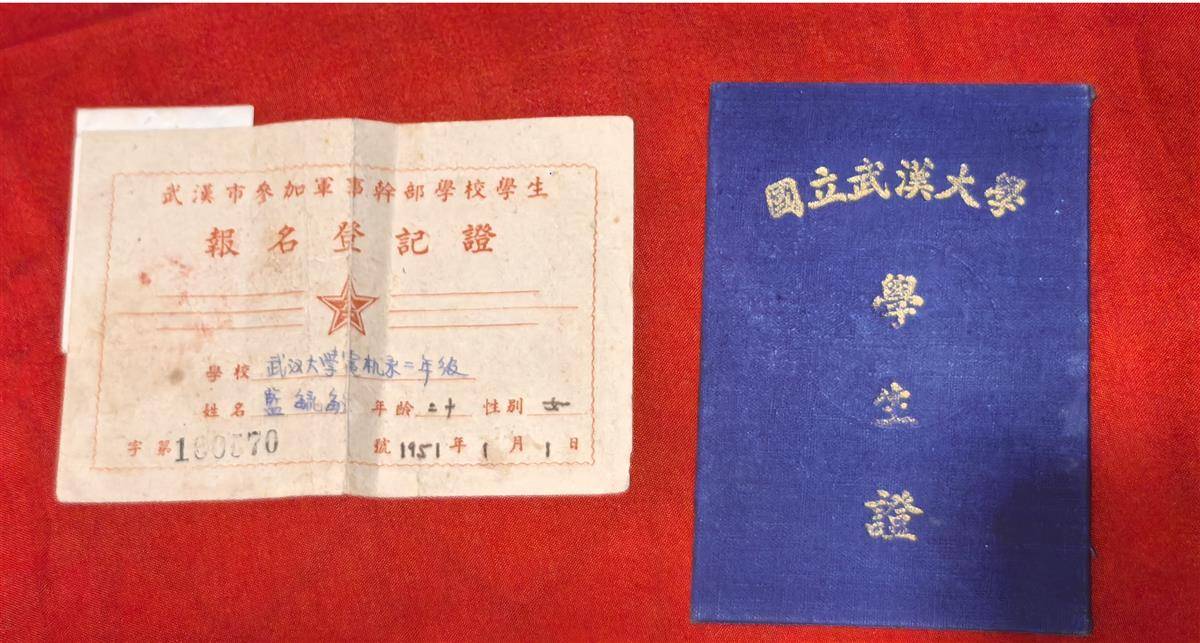 武漢市參加軍事幹部學校學生
報名登記證
學校 武汉大學電机系二年級
姓名 藍毓 年齡 二十 性別 女
字第 號 1951年1月1日
國立武漢大學
學
生
證